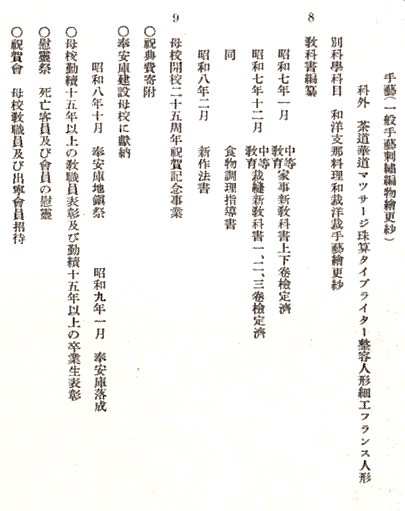 手藝(一般手藝刺繡編物繪更紗)
科外 茶道華道マツサージ珠算タイプライター整容人形細工フランス人形
別科學科目 和洋支那料理和裁洋裁手藝繪更紗
8 敎科書編纂
昭和七年一月 中等敎育家事新敎科書上下卷檢定濟
昭和七年十二月 中等敎育裁縫新敎科書一、二、三卷檢定濟
同 食物調理指導書
昭和八年二月 新作法書
9 母校開校二十五周年祝賀記念事業
〇祝典費寄附
〇奉安庫建設母校に獻納
昭和八年十月 奉安庫地鎭祭 昭和九年一月 奉安庫落成
〇母校勤續十五年以上の敎職員表彰及び勤續十五年以上の卒業生表彰
〇慰靈祭 死亡客員及び會員の慰靈
〇祝賀會 母校敎職員及び出寧會員招待